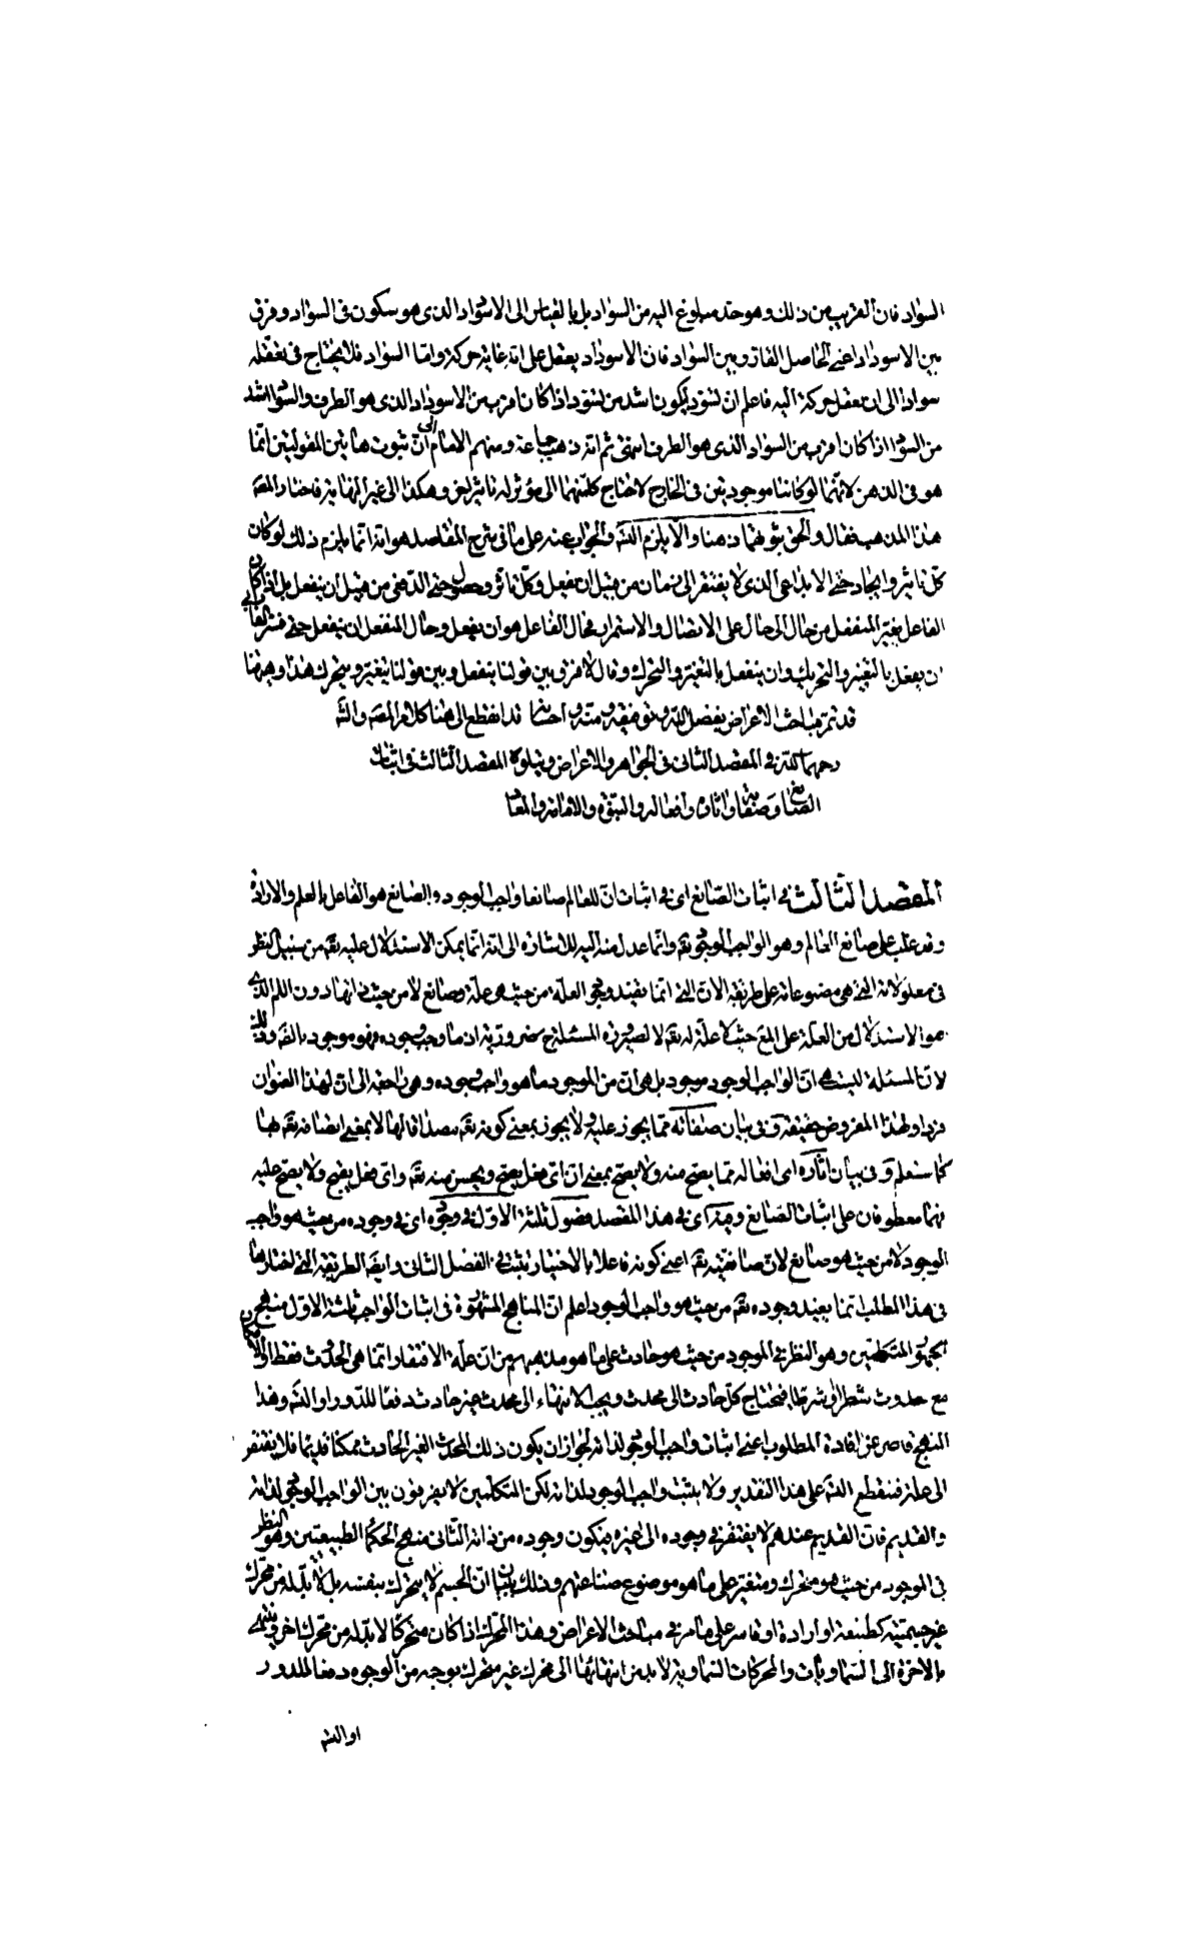 السواد فان القريب من ذلك وهو حد مبلوغ اليه من السواد بل بالقياس الى الاسوداد الذى هو سكون فى السواد وفرق
بين الاسوداد اعنى الحاصل القار وبين السواد فان الاسوداد يعقل على انه غاية حركة واما السواد فلا يحتاج فى تعقله
سوادا الى ان يعقل حركة اليه فاعلم ان لتسود يكون اشد من لتسود اذا كان اقرب من الاسوداد الذى هو الطرف والسواد اشد
من السواد اذا كان اقرب من السواد الذى هو الطرف انتهى ثم انه ذهب جماعة ومنهم الامام الى ان ثبوت هاتين المقولتين انما
هو فى الذهن لانهما لو كانتا موجودتين فى الخارج لاحتاج كلتيهما الى مؤثر له تاثير اخر وهكذا الى غير النهاية فاختار المصه
هذا المذهب فقال والحق ثبوتهما ذهنا والا يلزم التسه والجواب عنه على ما فى شرح المقاصد هو انه انما يلزم ذلك لو كان
كل تاثير وايجاد حتى الابداعى الذى لا يفتقر الى زمان من قبيل ان يفعل وكل تاثر وحصول حتى الدفعى من قبيل ان ينفعل بل اذا كان
الفاعل يغير المنفعل من حال الى حال على الاتصال والاستمرار فحال الفاعل هو ان يفعل وحال المنفعل ان ينفعل حتى فسر الفارابى
ان يفعل بالتغيير والتحريك وان ينفعل بالتغير والتحرك وقال لا فرق بين قولنا ينفعل وبين قولنا يتغير ويتحرك هذا وههنا
قد تم مباحث الاعراض بفضل الله وتوفيقه ومنه واحسانه قد انقطع الى هنا كلام المصه والش
رحمهما الله فى المقصد الثانى فى الجواهر والاعراض ويتلوه المقصد الثالث فى اثبات
الصانع وصفاته واثاره وافعاله والنبوة والامامة والمعاد
المقصد الثالث فى اثبات الصانع اى فى اثبات ان للعالم صانعا واجب الوجود والصانع هو الفاعل بالعلم والارادة
وقد غلب على صانع العالم وهو الواجب الوجود تعه وانما عدل منه اليه للاشارة الى انه انما يمكن الاستدلال عليه تعه من سبيل النظر
فى معلولاته التى هى مصنوعاته على طريقة الان التى انما تفيد وجود العلة من حيث هى علة وصانع لا من حيث ذاتها دون اللم الذى
هو الاستدلال من العلة على المع حيث لا علة له تعه لا لصيرورة المسئلة ح ضرورية اذ ما وجب وجوده فهو موجود بالضه وذلك
لان المسئلة ليست هى ان الواجب الوجود موجود بل هى ان من الموجود ما هو واجب وجوده وهى راجعة الى ان لهذا العنوان
فردا ولهذا المفروض حقيقة وفى بيان صفاته مما يجوز عليه ولا يجوز بمعنى كونه تعه مصداقا لها لا بمعنى اتصافه تعه بها
كما ستعلم وفى بيان اثاره اى افعاله مما يصح منه ولا يصح بمعنى ان اى فعل يصح ويحسن منه تعه واى فعل يقبح ولا يصح عليه
فهما معطوفان على اثبات الصانع وفيه اى فى هذا المقصد فصول ثلثة الاول فى وجوده اى فى وجوده من حيث هو واجب
الوجود لا من حيث هو صانع لان صانعيته تعه اعنى كونه فاعلا بالاختيار يثبت فى الفصل الثانى وايضه الطريقة التى اختارها
فى هذا المطلب انما يفيد وجوده تعه من حيث هو واجب الوجود اعلم ان المناهج المشهورة فى اثبات الواجب ثلثة الاول منهج
جمهور المتكلمين وهو النظر فى الموجود من حيث هو حادث على ما هو مذهبهم من ان علة الافتقار انما هى الحدوث فقط او الامكان
مع حدوث شطرا او شرطا فيحتاج كل حادث الى محدث ويجب الانتهاء الى محدث غير حادث دفعا للدور او التسه وهذا
المنهج قاصر عن افادة المطلوب اعنى اثبات واجب الوجود لذاته لجواز ان يكون ذلك المحدث الغير الحادث ممكنا قديما فلا يفتقر
الى علة فينقطع التسه على هذا التقدير ولا يثبت واجب الوجود لذاته لكن المتكلمين لا يفرقون بين الواجب الوجود لذاته
والقديم فان القديم عندهم لا يفتقر فى وجوده الى غيره فيكون وجوده من ذاته الثانى منهج الحكماء الطبيعيين وهو النظر
فى الموجود من حيث هو متحرك ومتغير على ما هو موضوع صناعتهم وذلك ببيان ان الجسم لا يتحرك بنفسه بل لا بد له من محرك
غير جسميته كطبيعة او ارادة او قاسر على ما مر فى مباحث الاعراض وهذا المحرك اذا كان متحركا لا بد له من محرك اخر وينتهى
بالاخرة الى السماويات والمحركات السماوية لا بد من انتهائها الى محرك غير متحرك بوجه من الوجوه دفعا للدور
او التسه